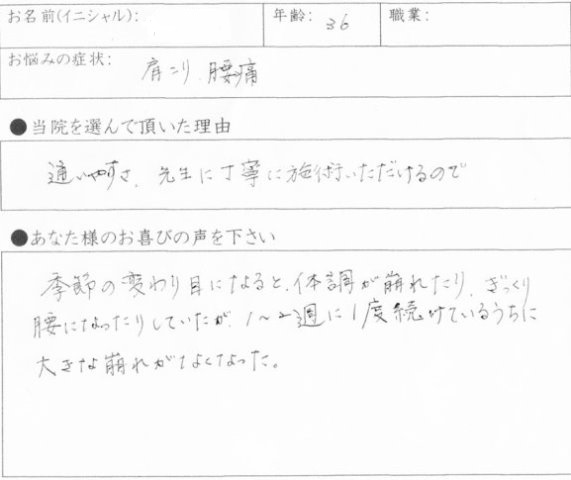 お名前(イニシャル):
年齢: 36
職業:
お悩みの症状:
肩こり 腰痛
●当院を選んで頂いた理由
通いやすさ、先生に丁寧に施術いただけるので
●あなた様のお喜びの声を下さい
季節の変わり目になると、体調が崩れたり、ぎっくり
腰になったりしていたが、1〜2週に1度続けているうちに
大きな崩れがなくなった。